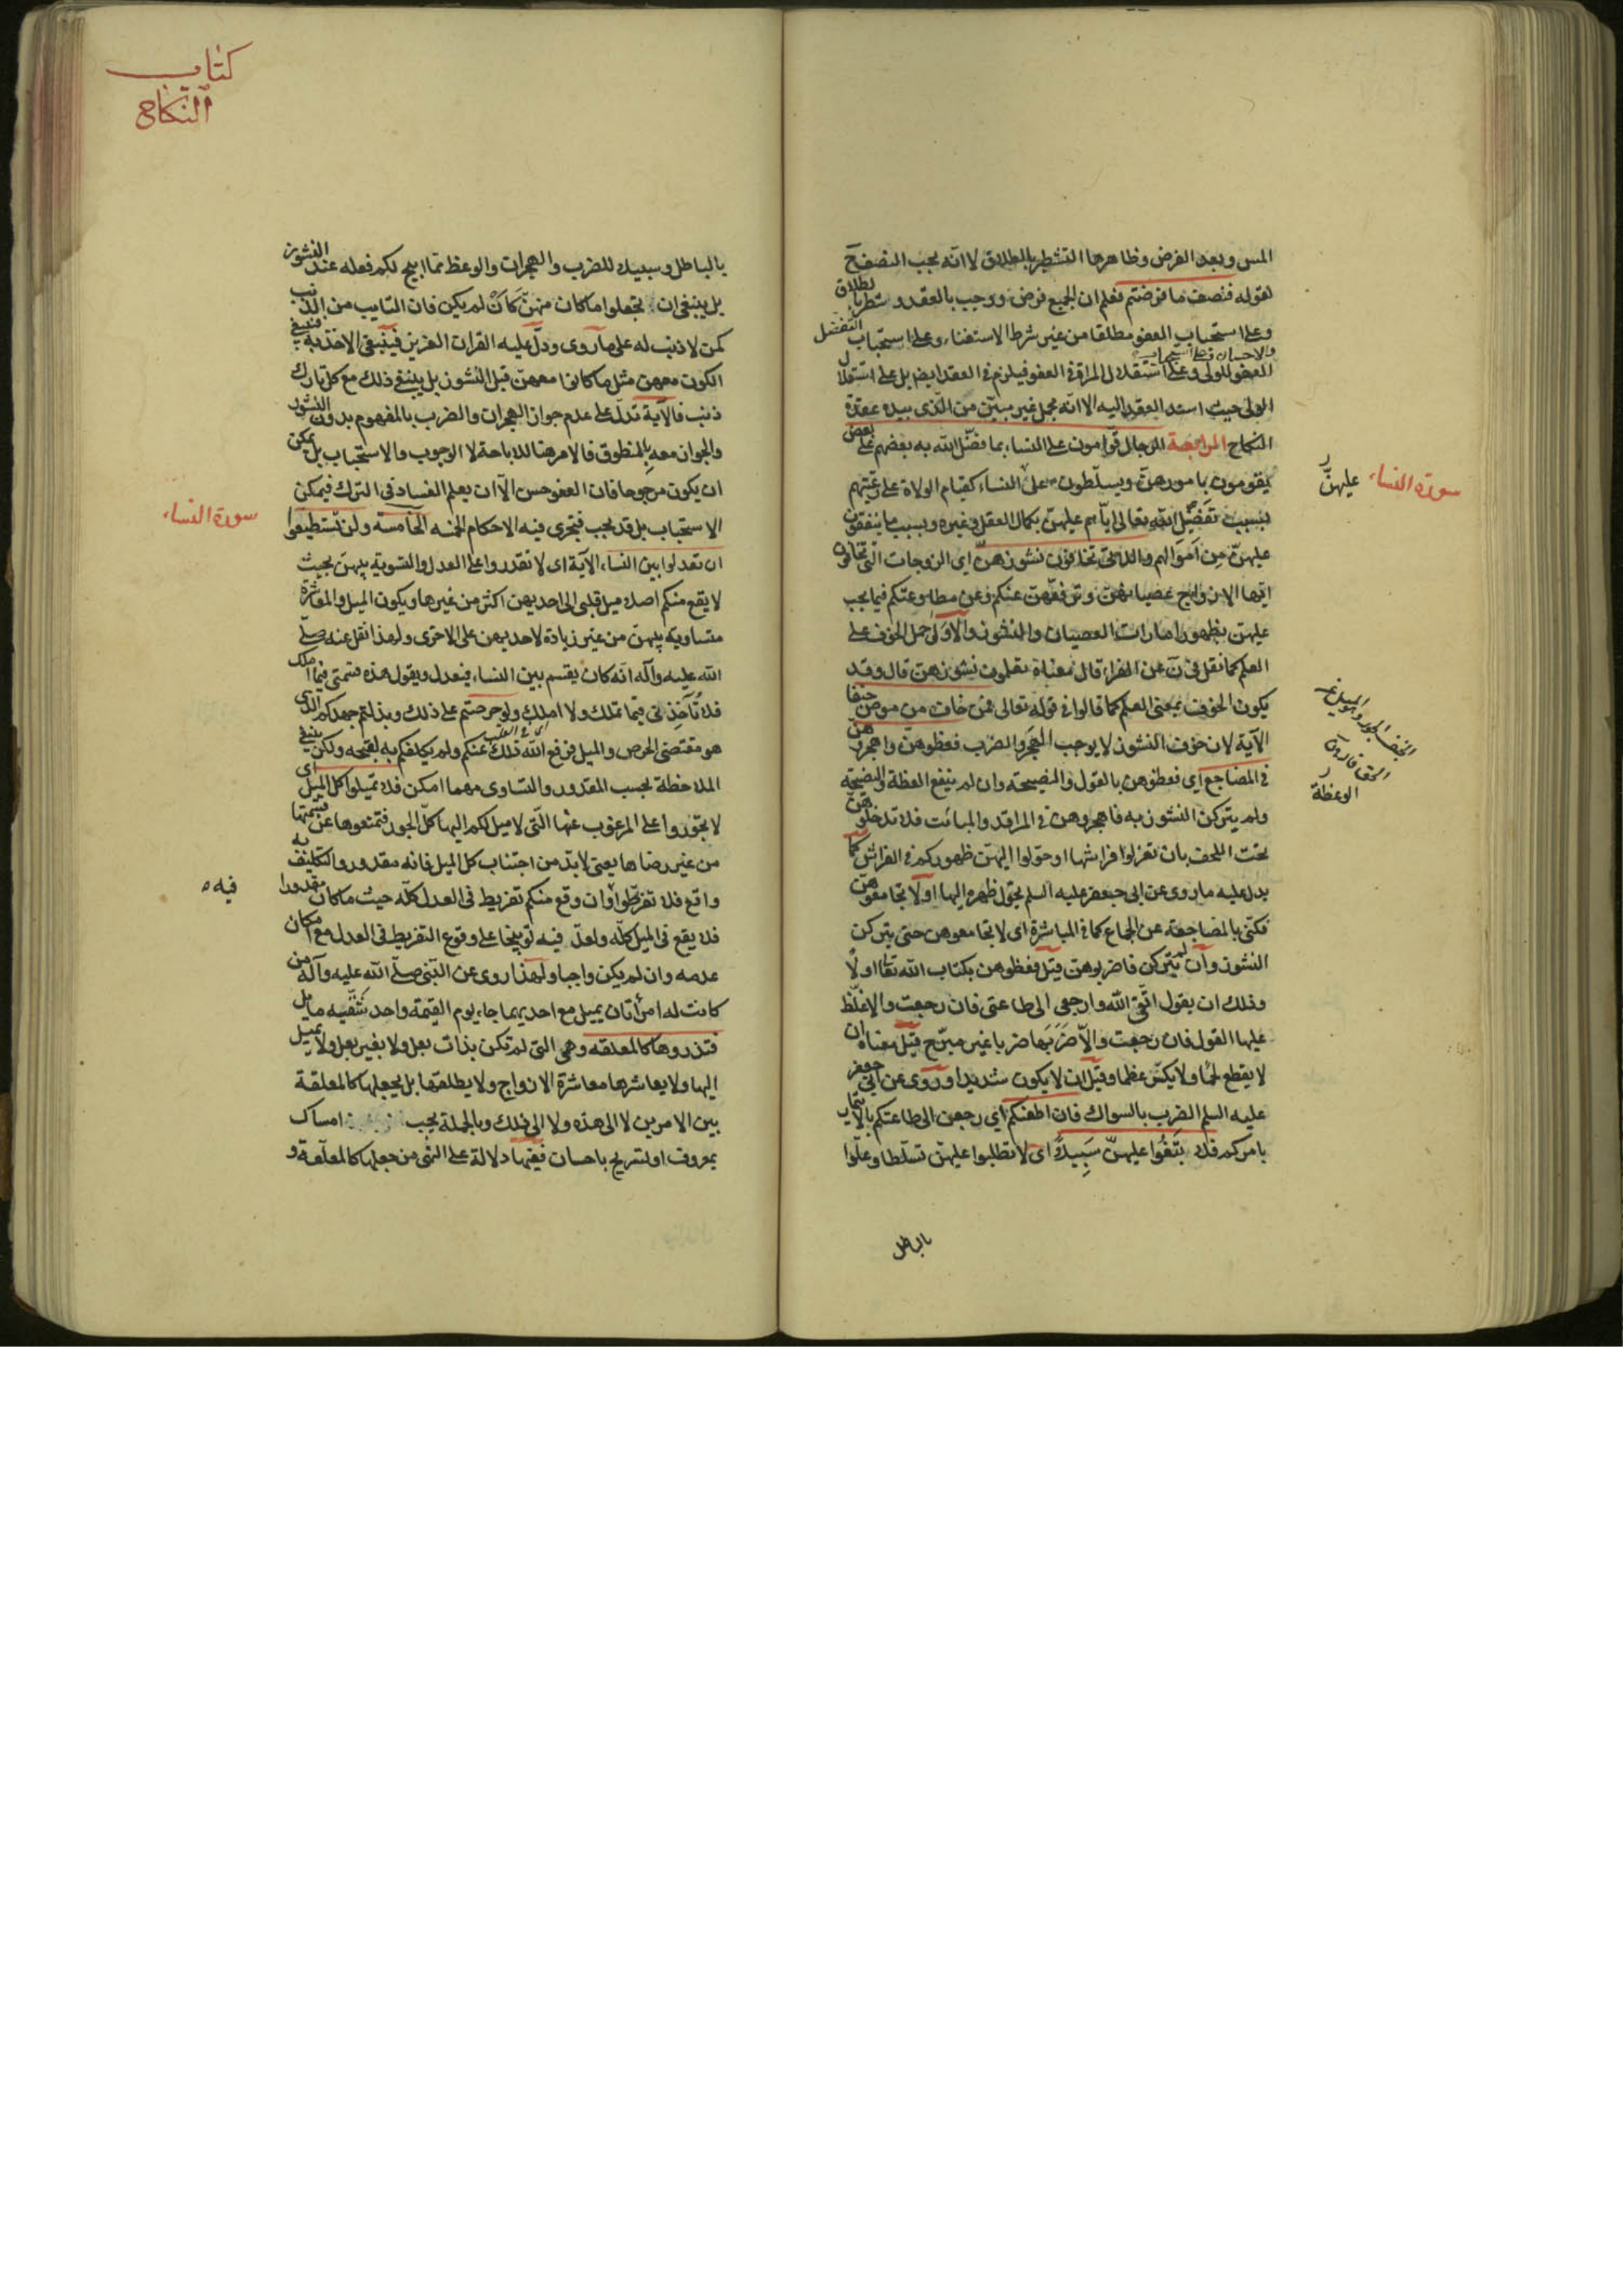 المس وبعد الفرض وظاهرها التشطير بالطلاق لا انه يجب النصف ح
لقوله فنصف ما فرضتم فعلم ان الجميع فرض ووجب بالعقد وشطر بالطلاق
وعلى استحباب العفو مطلقا من غير شرط الاستغناء وعلى استحباب التفضل
والاحسان وعلى استحباب
العفو للولى وعلى استقلال المراة فى العفو فيلزم فى العقد ايضا بل على استقلال
الولى حيث اسند العقد اليه الا انه مجمل غير مبين من الذى بيده عقدة
النكاح الرابعة الرجال قوامون على النساء بما فضل الله به بعضهم على بعض
يقومون بامورهن ويسلطون على النساء كقيام الولاة على رعيتهم
بسبب تفضيل الله تعالى اياهم عليهن بكمال العقل وغيره وبسبب ما ينفقون
عليهن من اموالهم واللاتى تخافون نشوزهن اى الزوجات التى تخافون
ايها الازواج عصيانهن وترفعهن عنكم وعن مطاوعتكم فيما يجب
عليهن بظهور امارات العصيان والنشوز والاولى حمل الخوف على
العلم كما نقل فى ن عن الفراء قال معناه تعلمون نشوزهن قال وقد
يكون الخوف بمعنى العلم كما قالوا فى قوله تعالى فمن خاف من موص جنفا
الآية لان خوف النشوز لا يوجب الهجر والضرب فعظوهن واهجروهن
فى المضاجع اى فعظوهن بالقول والنصيحة وان لم ينفع العظة والنصيحة
ولم يتركن النشوز به فاهجروهن فى المراقد والمبائت فلا تدخلوهن
تحت اللحف بان تعزلوا فراشها او حولوا اليهن ظهوركم فى الفراش كما
يدل عليه ما روى عن ابى جعفر عليه السلم يحول ظهره اليها او لا تجامعوهن
فكنى بالمضاجعة عن الجماع كما فى المباشرة اى لا تجامعوهن حتى يتركن
النشوز وان لم يتركن فاضربوهن قيل فعظوهن بكتاب الله تعالى اولا
وذلك ان يقول اتقى الله وارجعى الى طاعتى فان رجعت والا غلظ
عليها القول فان رجعت والا ضربها ضربا غير مبرح قيل معناه ان
لا يقطع لحما ولا يكسر عظما وقيل ان لا يكون شديدا وروى عن ابى جعفر
عليه السلم الضرب بالسواك فان اطعنكم اى رجعن الى طاعتكم بالايتمار
بامركم فلا تبغوا عليهن سبيلا اى لا تطلبوا عليهن تسلطا وعلوا
بالباطل
سورة النساء
عليهن
الوعظة
كتاب
النكاح
بالباطل وسبيلا للضرب والهجران والوعظ مما ابيح لكم فعله عند النشوز
بل ينبغى ان تجعلوا ما كان منهن كان لم يكن فان التايب من الذنب
كمن لا ذنب له على ما روى ودل عليه القران العزيز فينبغى الاخذ به فينبغى
الكون معهن مثل ما كانوا معهن قبل النشوز بل ينبغى ذلك مع كل تارك
ذنب فالآية تدل على عدم جواز الهجران والضرب بالمفهوم بدون النشوز
والجواز معه بالمنطوق فالامر هنا للاباحة لا الوجوب والاستحباب بل يمكن
ان يكون مرجوحا فان العفو حسن الا ان يعلم الفساد فى الترك فيمكن
الاستحباب بل قد يجب فتجرى فيه الاحكام الخمسه الخامسة ولن تستطيعوا
ان تعدلوا بين النساء الآية اى لا تقدروا على العدل والتسوية بينهن بحيث
لا يقع منكم اصلا ميل قلبى الى احديهن اكثر من غيرها ويكون الميل والمعاشرة
متساوية بينهن من غير زيادة لاحديهن على الاخرى ولهذا نقل عنه صلى
الله عليه وآله انه كان يقسم بين النساء فيعدل ويقول هذه قسمتى فيما املك
فلا تؤاخذنى فيما تملك ولا املك ولو حرصتم على ذلك وبذلتم جهدكم الذى
هو مقتضى الحرص والميل فرفع الله ذلك عنكم ولم يكلفكم به لقبحه ولكن ينبغى
الملاحظة بحسب المقدور والتساوى مهما امكن فلا تميلوا كل الميل اى
لا تجوروا على المرغوب عنها التى لا ميل لكم اليها كل الجور فتمنعوها عن قسمتها
من غير رضاها يعنى لا بد من اجتناب كل الميل فانه مقدور والتكليف به
واقع فلا تفرطوا وان وقع منكم تفريط فى العدل كله حيث ما كان مقدورا
فلا يقع فى الميل كله ولعل فيه توبيخا على وقوع التفريط فى العدل مع امكان
عدمه وان لم يكن واجبا ولهذا روى عن النبى صلى الله عليه وآله من
كانت له امرأتان يميل مع احديهما جاء يوم القيمة واحد شقيه مايل
فتذروها كالمعلقه وهى التى لم تكن بذات بعل ولا بغير بعل ولا يميل
اليها ولا يعاشرها معاشرة الازواج ولا يطلقها بل يجعلها كالمعلقة
بين الامرين لا الى هذه ولا الى ذلك وبالجملة يجب امساك
بمعروف او تسريح باحسان ففيها دلالة على النهى من جعلها كالمعلقة و
سورة النساء
فيه